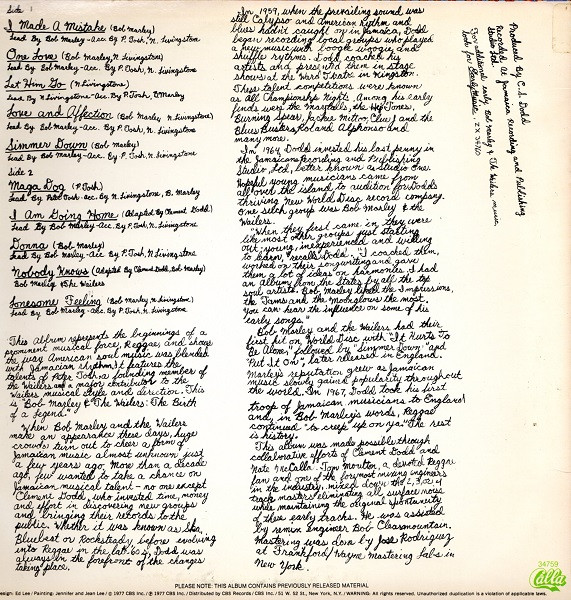 Side 1
I Made A Mistake (Bob Marley)
Lead By Bob Marley-Acc. By P. Tosh, N. Livingstone
One Love (Bob Marley, N. Livingstone)
Lead By Bob Marley-Acc. By P. Tosh, N. Livingstone
Let Him Go (N. Livingstone)
Lead By N. Livingstone-Acc. By P. Tosh, B. Marley
Love and Affection (Bob Marley, N. Livingstone)
Lead By Bob Marley-Acc. By P. Tosh, N. Livingstone
Simmer Down (Bob Marley)
Lead By Bob Marley-Acc. By P. Tosh, N. Livingstone
Side 2
Maga Dog (P. Tosh)
Lead By Peter Tosh-acc. By N. Livingstone, B. Marley
I Am Going Home (Adapted By Clement Dodd)
Lead By Bob Marley-Acc. By P. Tosh, N. Livingstone
Donna (Bob Marley)
Lead By Bob Marley-Acc. By P. Tosh, N. Livingstone
Nobody Knows (Adapted By Clement Dodd, Bob Marley)
Bob Marley & The Wailers
Lonesome Feeling (Bob Marley, N. Livingstone)
Lead By Bob Marley-Acc. By P. Tosh, N. Livingstone
This Album represents the beginnings of a
prominent musical force, Reggae, and shows
the way American soul music was blended
with Jamaican rhythm. It features the
talents of Peter Tosh, a founding member of
the Wailers and a major contributor to the
Wailers musical style and direction. This
is "Bob Marley & The Wailers: The Birth
of a legend."
When Bob Marley and the Wailers
make an appearance these days, huge
crowds turn out to cheer a form of
Jamaican music almost unknown just
a few years ago. More than a decade
ago, few wanted to take a chance on
Jamaican musical talent - no one except
Clement Dodd, who invested time, money
and effort in discovering new groups
and bringing their records to the
public. Whether it was known as Ska,
Bluebeat or Rocksteady before evolving
into Reggae in the late 60s, Dodd was
always in the forefront of the changes
taking place.
In 1959, when the prevailing sound was
still Calypso and American Rhythm and
blues hadn't caught on in Jamaica, Dodd
began recording local groups who played
a new music with boogie woogie and
shuffle rhythms. Dodd coached his
artists and presented them in stage
shows at the Ward Theatre in Kingston.
These talent competitions were known
as All Championship Nights. Among his early
finds were the Maytalls, the Hep Tones,
Burning Spear, Jackie Mittoo, Clue J and the
Blues Busters, Roland Alphonso and
many more.
In 1964 Dodd invested his last penny in
the Jamaican Recording and Publishing
Studio, Ltd., better known as Studio One.
Hopeful young musicians came from
all over the island to audition for Dodd's
thriving New World Disc record company.
One such group was Bob Marley & the
Wailers.
"When they first came in they were
like most other groups just starting
out: young, inexperienced and willing
to learn," recalls Dodd. "I coached them,
worked on their songwriting and gave
them a lot of ideas on harmonies. I had
an album from the States by all the top
soul artists. Bob Marley liked the Impressions,
the Tams and the Moonglows the most.
You can hear the influence on some of his
early songs."
Bob Marley and the Wailers had their
first hit on World Disc with "It Hurts To
Be Alone," followed by "Simmer Down" and
"Put It On", later released in England.
Marley's reputation grew as Jamaican
music slowly gained popularity throughout
the world. In 1967, Dodd took his first
troop of Jamaican musicians to England
and, in Bob Marley's words, Reggae
continued "to creep up on ya." The rest
is history.
This album was made possible through
collaborative efforts of Clement Dodd and
Nate McCalla. Tom Moulton, a devoted Reggae
fan and one of the foremost mixing engineers
in the industry, mixed down the 1, 2, 3, or 4
track masters eliminating all surface noise
while maintaining the original spontaneity
of these early tracks. He was assisted
by remix Engineer Bob Clearmountain.
Mastering was done by Jose Rodriguez
at Frankford/Wayne Mastering Labs in
New York.
Produced by C.S. Dodd
recorded At Jamaica Recording and Publishing
Studio Ltd.
For additional early Bob Marley & The Wailers music
look for Early Music. ZX 34760
34759
Calla
PLEASE NOTE: THIS ALBUM CONTAINS PREVIOUSLY RELEASED MATERIAL
esign: Ed Lee / Painting: Jennifer and Jean Lee / © 1977 CBS Inc. / ℗ 1977 CBS Inc. / Distributed by CBS Records / CBS Inc. / 51 W. 52 St., New York, N.Y. / WARNING: All rights reserved. Unauthorized duplication is a violation of applicable laws.